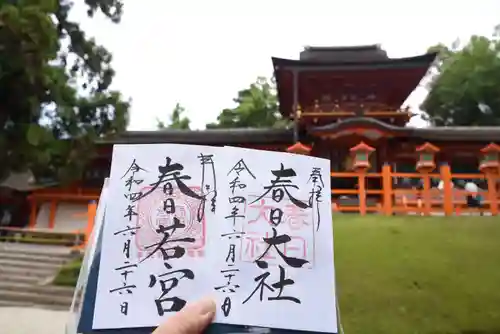 奉拝
春日大社
令和四年六月二十二日
奉拝
春日若宮
令和四年六月二十二日